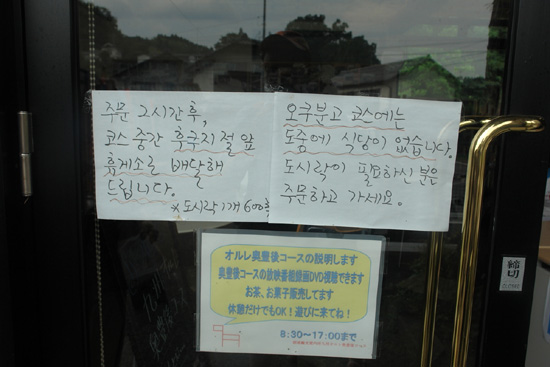 주문 2시간후,
코스 중간 후쿠지 절 앞
휴게소로 배달해
드립니다.
※도시락1개 600
오쿠분고 코스에는
도중에 식당이 없습니다.
도시락이 필요하신 분은
주문하고 가세요。
オルレ奥豊後コースの説明します
奥豊後コースの放映番組録画DVD視聴できます
お茶、お菓子販売してます
休憩だけでもOK！遊びに来てね！
8:30～17:00まで
締切